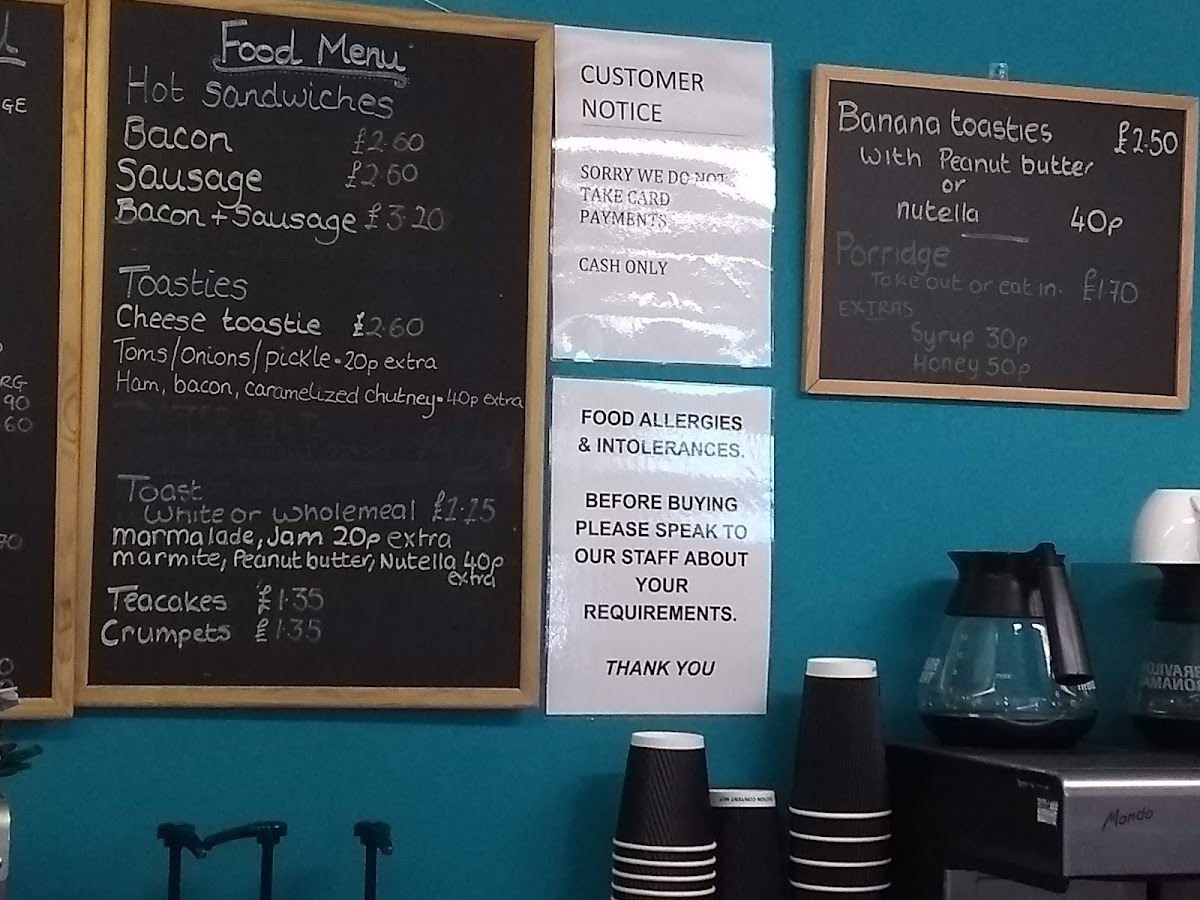 GE
RG
90
.60
70
Food Menu
Hot Sandwiches
Bacon £2.60
Sausage £2.60
Bacon + Sausage £3.20
Toasties
Cheese toastie £2.60
Toms/Onions/pickle - 20p extra
Ham, bacon, caramelized chutney - 40p extra
Toast
White or wholemeal
marmalade, Jam 20p extra
marmite, Peanut butter, Nutella 40p
extra
Teacakes £1.35
Crumpets £1.35
CUSTOMER
NOTICE
SORRY WE DO NOT
TAKE CARD
PAYMENTS
CASH ONLY
FOOD ALLERGIES
& INTOLERANCES.
BEFORE BUYING
PLEASE SPEAK TO
OUR STAFF ABOUT
YOUR
REQUIREMENTS.
THANK YOU
Banana toasties £2.50
With Peanut butter
or
nutella 40p
Porridge
Take out or eat in. £1.70
EXTRAS
Syrup 30p
Honey 50p
CAUTION CONTENT HOT
BRAVILOR
BONAMAT
Mondo